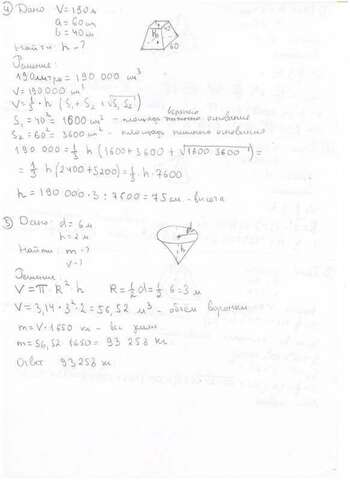 ④ Дано V=190л
a=60см
b=40см
Найти h-?
60
Решение:
190литра = 190 000 см³
V=190000 см³
V=⅓·h (S₁+S₂+√S₁S₂)
верхнего
S₁=40²=1600см² - площадь основания
S₂=60²=3600см² - площадь нижнего основания
190 000=⅓ h (1600+3600+√1600 3600)=
=⅓ h(2400+5200)=⅓·h·7600
h=190 000·3÷7600=75см.-высота
⑤ Дано: d=6м
h=2м
Найти: m-?
V-?
h
Решение
V=π·R²h R=½d=½·6=3м
V=3,14·3²·2=56,52 м³ - объём воронки
m=V·1650 кг - вес
m=56,52·1650=93 258 кг.
Ответ 93258 кг